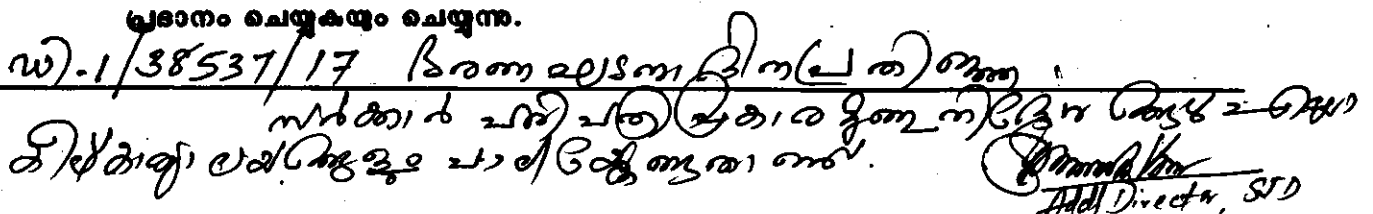 പ്രദാനം ചെയ്യുകയും ചെയ്യുന്നു.
ഡി.1/38537/17 ഭരണഘടനാ ദിന പ്രതിജ്ഞ
സർക്കാർ പരിപത്ര പ്രകാരമുള്ള നിർദ്ദേശങ്ങൾ എല്ലാ
കീഴ്കാര്യാലയങ്ങളും പാലിക്കേണ്ടതാണ്.
Addl Director, STD